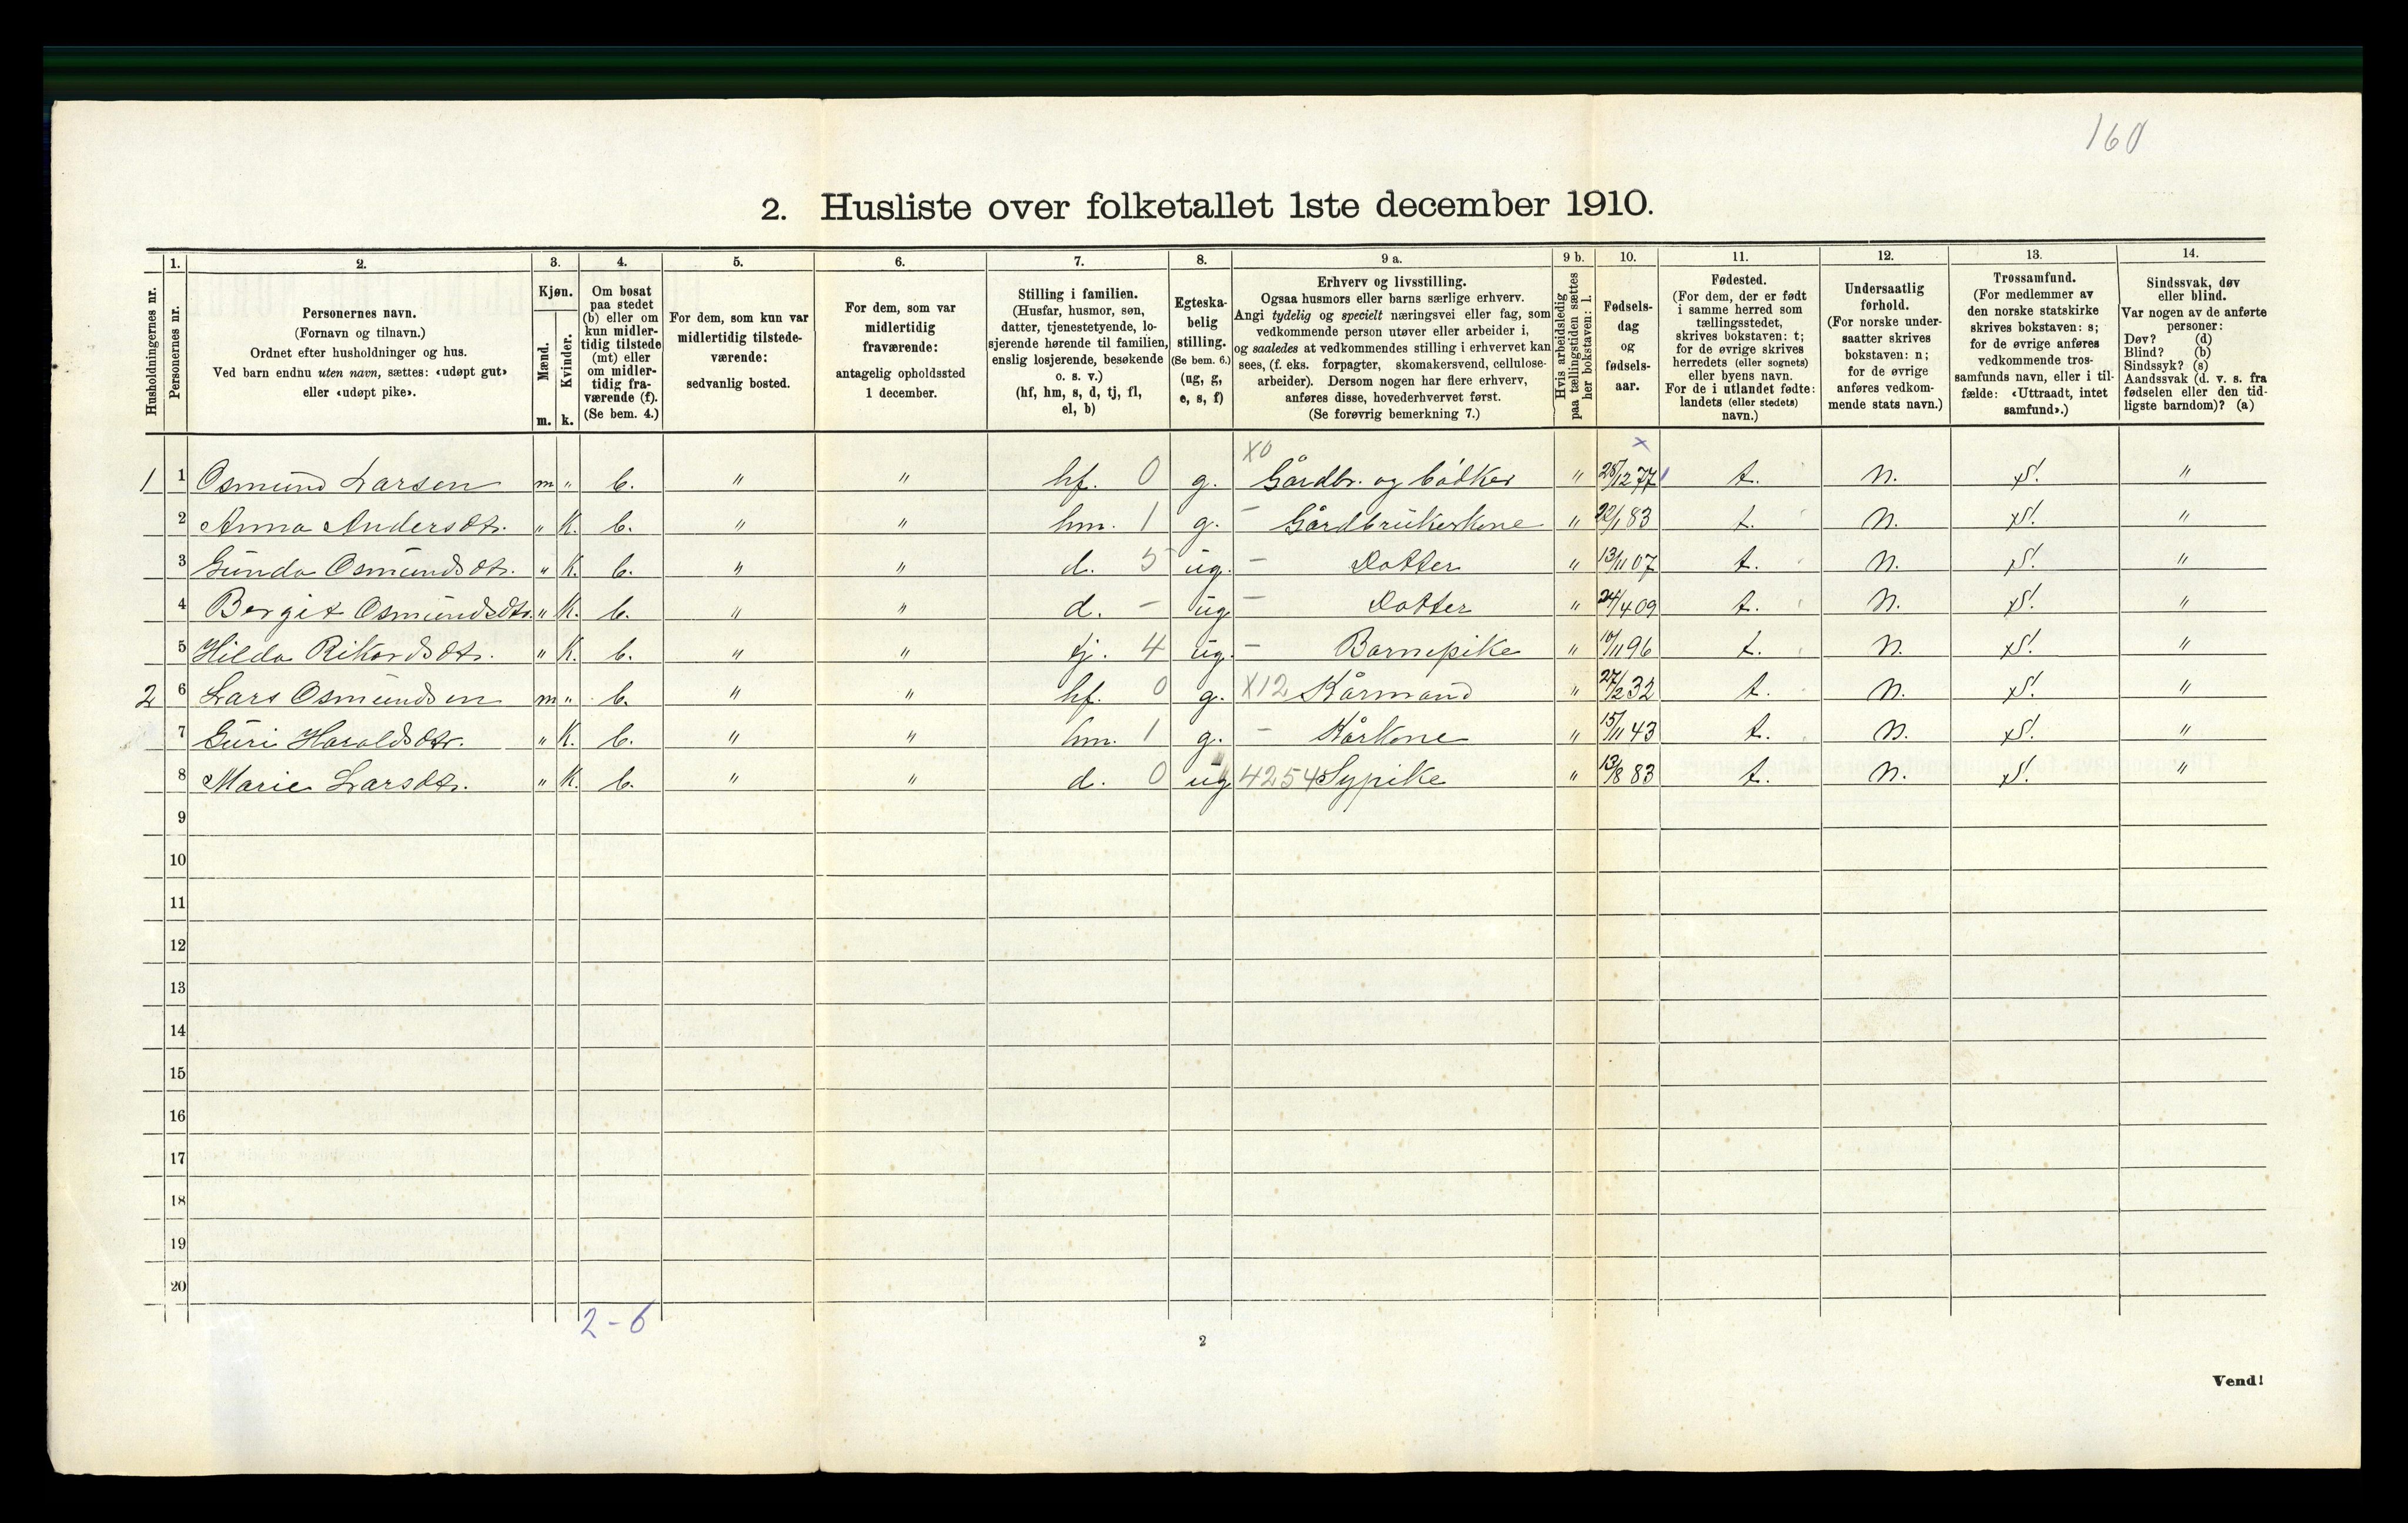 160
2. Husliste over folketallet 1ste december 1910.
Husholdningernes nr.
1. Personernes nr.
2. Personernes navn.
(Fornavn og tilnavn.)
Ordnet efter husholdninger og hus.
Ved barn endnu uten navn, sættes: «udøpt gut»
eller «udøpt pike».
3. Kjøn.
Mænd. m.
Kvinder. k.
4. Om bosat
paa stedet
(b) eller om
kun midler-
tidig tilstede
(mt) eller
om midler-
tidig fra-
værende (f).
(Se bem. 4.)
5. For dem, som kun var
midlertidig tilstede-
værende:
sedvanlig bosted.
6. For dem, som var
midlertidig
fraværende:
antagelig opholdssted
1 december.
7. Stilling i familien.
(Husfar, husmor, søn,
datter, tjenestetyende, lo-
sjerende hørende til familien,
enslig losjerende, besøkende
o. s. v.)
(hf, hm, s, d, tj, fl,
el, b)
8. Egteska-
belig
stilling.
(Se bem. 6.)
(ug, g,
e, s, f)
9 a. Erhverv og livsstilling.
Ogsaa husmors eller barns særlige erhverv.
Angi tydelig og specielt næringsvei eller fag, som
vedkommende person utøver eller arbeider i,
og saaledes at vedkommendes stilling i erhvervet kan
sees, (f. eks. forpagter, skomakersvend, cellulose-
arbeider). Dersom nogen har flere erhverv,
anføres disse, hovederhvervet først.
(Se forøvrig bemerkning 7.)
9 b. Hvis arbeidsledig
paa tællingstiden sættes
her bokstaven: l.
10. Fødsels-
dag
og
fødsels-
aar.
11. Fødested.
(For dem, der er født
i samme herred som
tællingsstedet,
skrives bokstaven: t;
for de øvrige skrives
herredets (eller sognets)
eller byens navn.
For de i utlandet fødte:
landets (eller stedets)
navn.)
12. Undersaatlig
forhold.
(For norske under-
saatter skrives
bokstaven: n;
for de øvrige
anføres vedkom-
mende stats navn.)
13. Trossamfund.
(For medlemmer av
den norske statskirke
skrives bokstaven: s;
for de øvrige anføres
vedkommende tros-
samfunds navn, eller i til-
fælde: «Uttraadt, intet
samfund».)
14. Sindssvak, døv
eller blind.
Var nogen av de anførte
personer:
Døv? (d)
Blind? (b)
Sindssyk? (s)
Aandssvak (d. v. s. fra
fødselen eller den tid-
ligste barndom)? (a)
X0 x
1 1 Osmund Larsen m " b. " " hf. 0 g. Gårdbr. og bödker " 28/12 77 t. n. S. "
2 Anna Andersdtr. " K. b. " " hm. 1 g. – Gårdbrukerkone " 22/1 83 t. n. S. "
3 Gunda Osmundsdtr. " K. b. " " d. 5 ug. – Datter " 13/11 07 t. n. S. "
4 Bergit Osmundsdtr. " K. b. " " d. – ug – Datter " 24/4 09 t. n. S. "
5 Hilda Rikardsdtr. " K. b. " " tj. 4 ug. – Barnepike " 10/11 96 t. n. S. "
2 6 Lars Osmundsen m " b. " " hf. 0 g. X12 Kårmand " 27/2 32 t. n. S. "
7 Guri Haraldsdtr. " K. b. " " hm. 1 g. – Kårkone " 15/11 43 t. n. S. "
8 Marie Larsdtr. " K. b. " " d. 0 ug 4254 Sypike " 13/8 83 t. n. S. "
9
10
11
12
13
14
15
16
17
18
19
20
2 - 6
2
Vend!